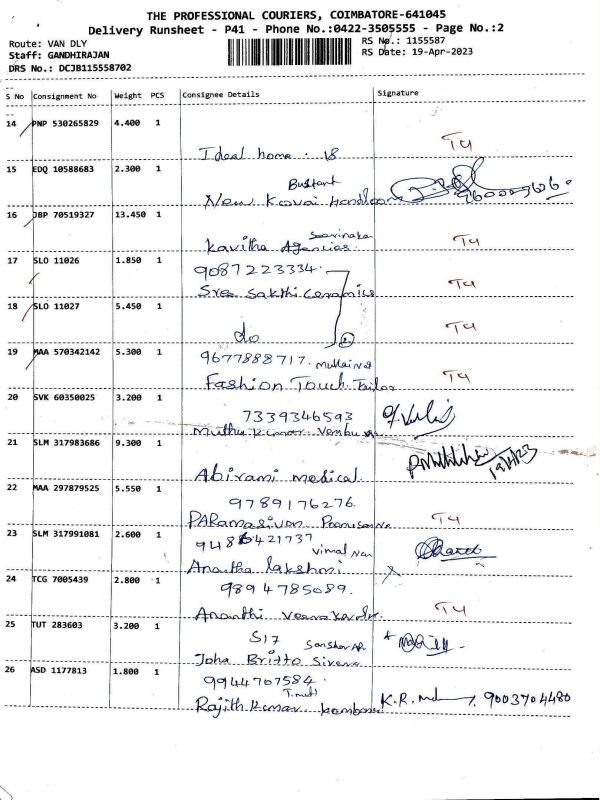 THE PROFESSIONAL COURIERS, COIMBATORE-641045
Delivery Runsheet - P41 - Phone No.:0422-3505555 - Page No.:2
Route: VAN DLY
RS No.: 1155587
Staff: GANDHIRAJAN
RS Date: 19-Apr-2023
DRS No.: DCJB115558702
S No Consignment No Weight PCS Consignee Details Signature
14 PNP 530265829 4.400 1
T4
Ideal home. 18
15 EDQ 10588683 2.300 1
New Kovai Handloom
16 JBP 70519327 13.450 1
T4
Kavitha Agencies
17 SLO 11026 1.850 1
9087223334
T4
Sree Sakthi Ceramics
18 SLO 11027 5.450 1
T4
do
19 MAA 570342142 5.300 1
9677888717
T4
Fashion Touch Tailor
20 SVK 60350025 3.200 1
7339346593
Muthu Kumar
21 SLM 317983686 9.300 1
19/4/23
Abirami medical
22 MAA 297879525 5.550 1
9789176276
T4
PARamasivan
23 SLM 317991081 2.600 1
Vimal
Anantha lakshmi
24 TCG 7005439 2.800 1
9894785089
T4
Ananthi
25 TUT 283603 3.200 1
S17
Joha Britto
26 ASD 1177813 1.800 1
9944707584
K.R. 9003704480
Rajith Kumar